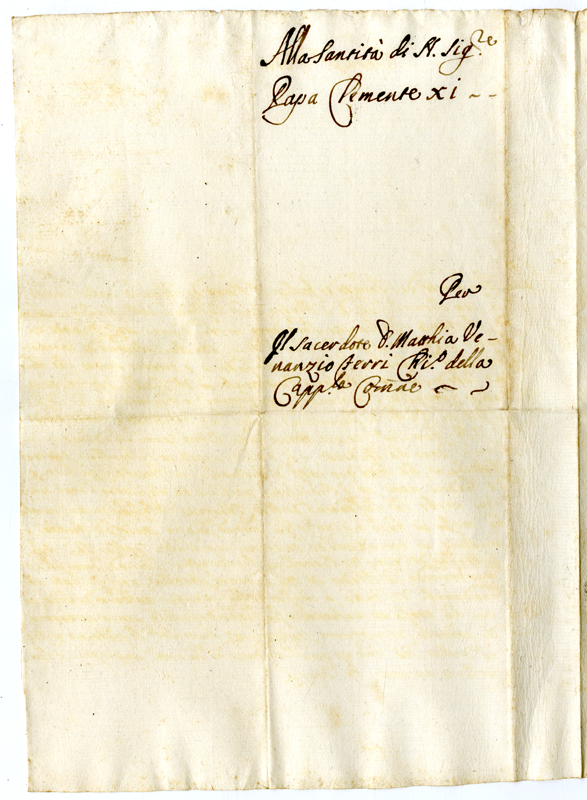 Alla Santità di N. Sig.re
Papa Clemente xi
Per
Il Sacerdote D. Matthia Ve-
nanzio ferri della
Capp.la Com̃ne